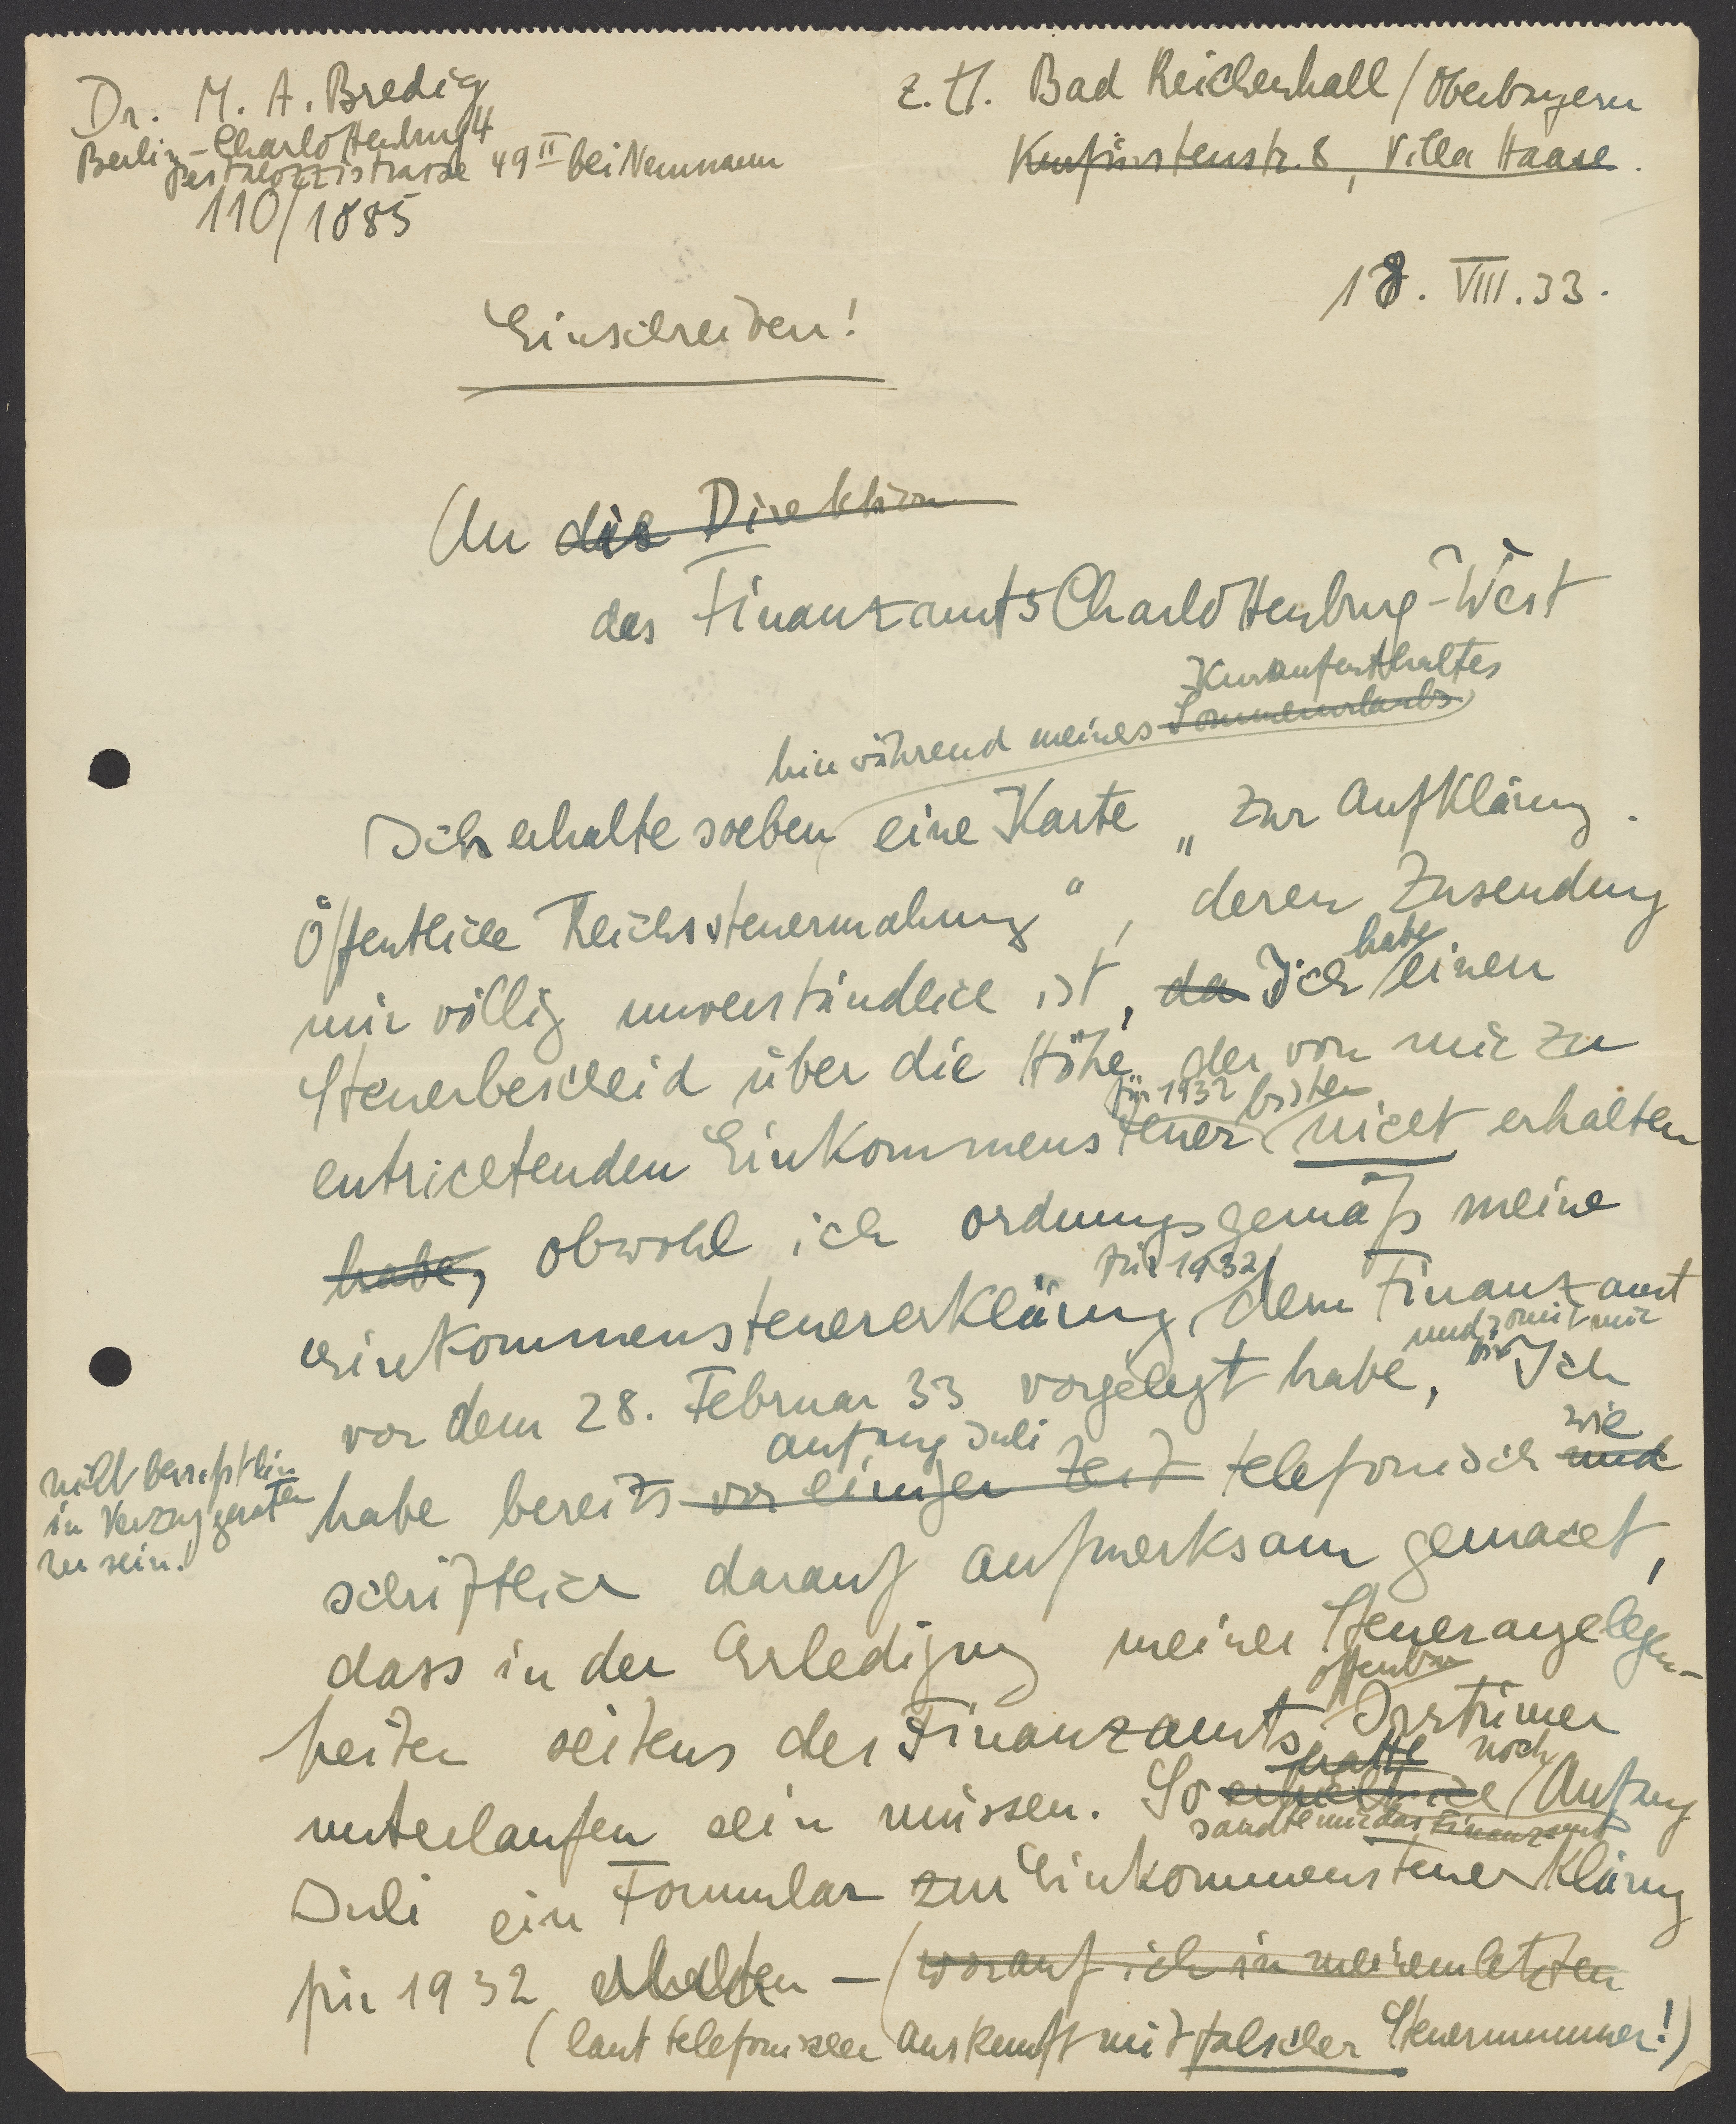 Dr. M. A. Bredig
Berlin-Charlottenburg 4
Pestalozzistrasse 49 II bei Neumann
110/1085
z. Zt. Bad Reichenhall / Oberbayern
Kurfürstenstr. 8, Villa Haase.
18. VIII. 33.
Einschreiben!
An die Direktion
des Finanzamts Charlottenburg-West
Kuraufenthaltes
hier während meines Sommerurlaubs
Ich erhalte soeben eine Karte „Zur Aufklärung.
Öffentliche Reichssteuermahnung“, deren Zusendung
habe
mir völlig unverständlich ist, da Ich einen
Steuerbescheid über die Höhe der von mir zu
für 1932 bisher
entrichtenden Einkommensteuer nicht erhalten
habe, obwohl ich ordnungsgemäß meine
für 1932
Einkommensteuererklärung dem Finanzamt
und somit mir
vor dem 28. Februar 33 vorgelegt habe, Ich
nicht bewusst bin
in Verzug geraten
zu sein!
Anfang Juli wie
habe bereits vor einiger Zeit telefonisch und
schriftlich darauf aufmerksam gemacht,
dass in der Erledigung meiner Steuerangelegen-
offenbar
heiten seitens des Finanzamts Irrtümer
hatte noch
unterlaufen sein müssen. So erhielt ich Anfang
sandte mir das Finanzamt
Juli ein Formular zur Einkommensteuererklärung
für 1932 erhalten – (worauf ich in meinem letzten
(laut telefonischer Auskunft mit falscher Steuernummer!)